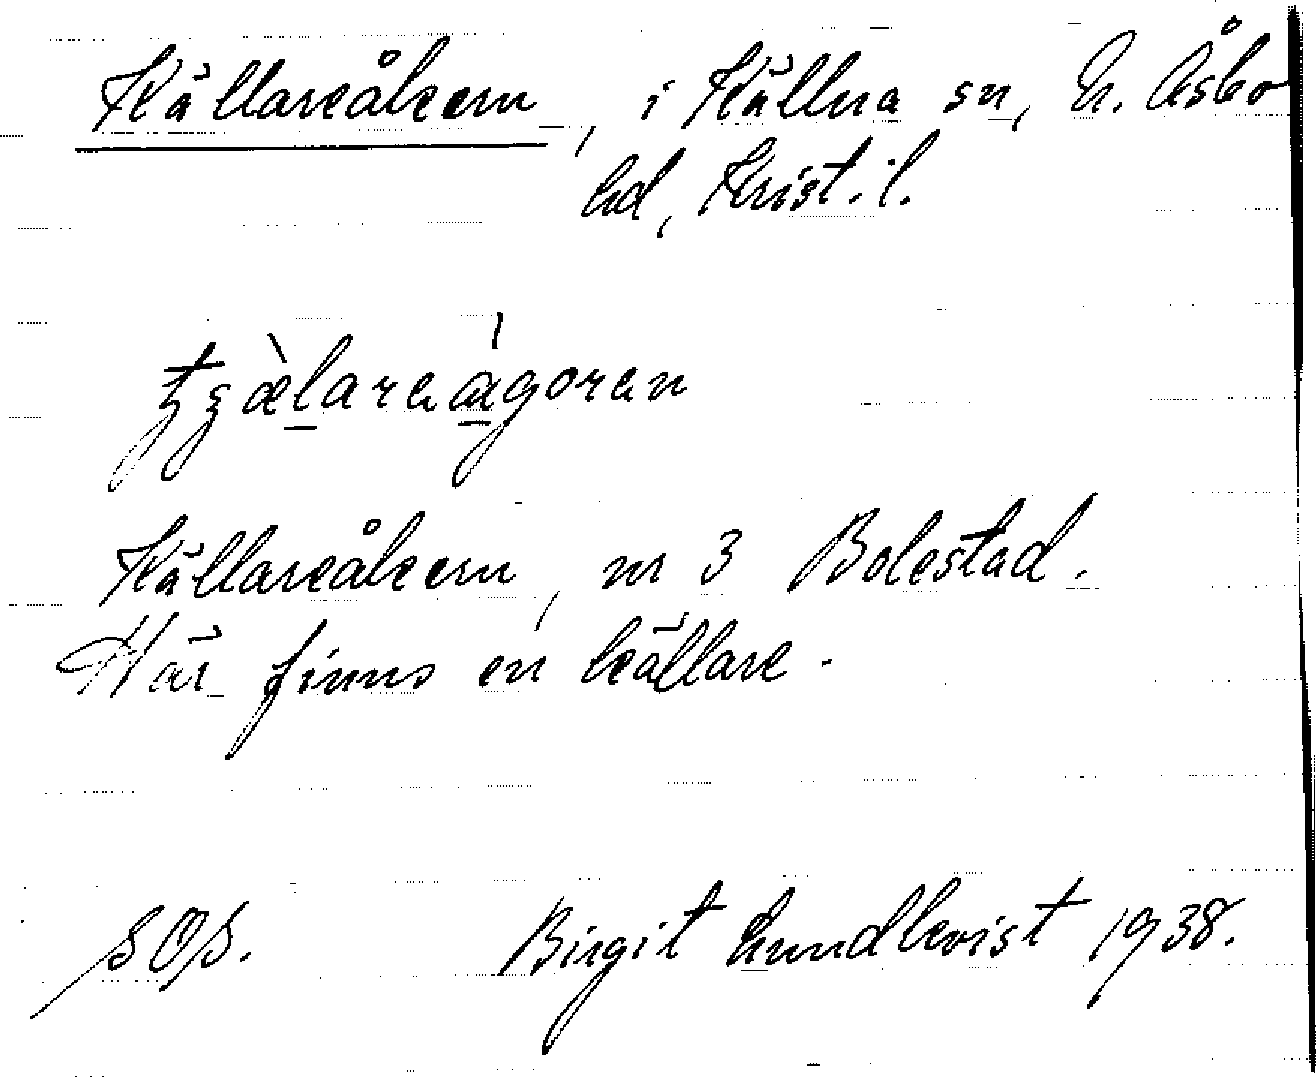 Källareåkern, i Källna sn, N. Åsbo
hd, Krist. l.
Källareåkern, nr 3 Bolestad.
Här finns en källare.
SOS. Birgit Lundkvist 1938.